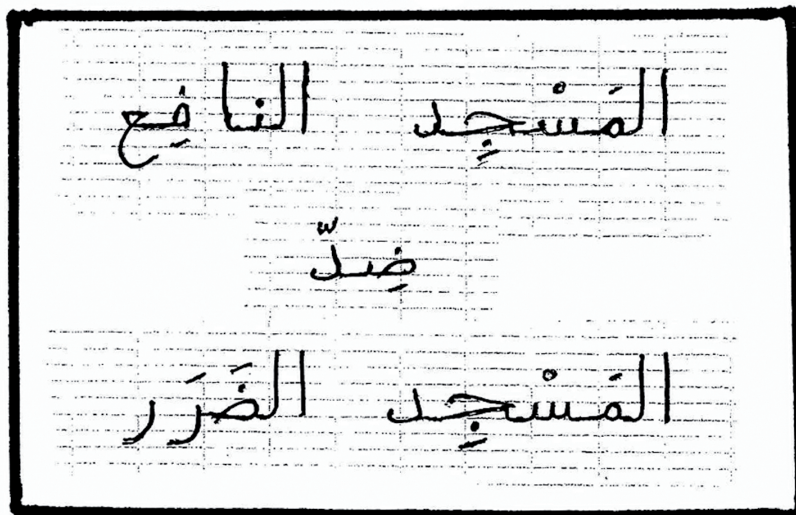 المَسْجِد النافِع
ضِدّ
المَسْجِد الضَرَر